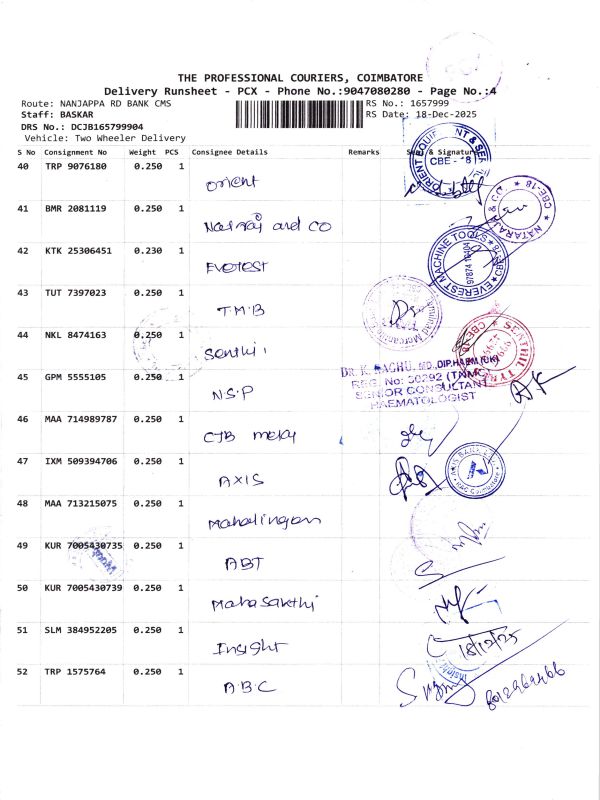 THE PROFESSIONAL COURIERS, COIMBATORE
Delivery Runsheet - PCX - Phone No.:9047080280 - Page No.:4
Route: NANJAPPA RD BANK CMS RS No.: 1657999
Staff: BASKAR RS Date: 18-Dec-2025
DRS No.: DCJB165799904
Vehicle: Two Wheeler Delivery
S No Consignment No Weight PCS Consignee Details Remarks Seal & Signature
40 TRP 9076180 0.250 1 orient
ORIENT EQUIPMENT & SER
CBE - 18
41 BMR 2081119 0.250 1 Natraj and CO
NATARAJ & CO. CBE-18
42 KTK 25306451 0.230 1 EVEREST
EVEREST MACHINE TOOLS
43 TUT 7397023 0.250 1 T.M.B
44 NKL 8474163 0.250 1 Senthil
SENTHIL TYRE
45 GPM 5555105 0.250 1 N.S.P
DR. K. RAGHU, MD.,DIP.HAEM (UK)
REG. No: 50292 (TNMC)
SENIOR CONSULTANT
HAEMATOLOGIST
46 MAA 714989787 0.250 1 CJB
47 IXM 509394706 0.250 1 AXIS
AXIS BANK
48 MAA 713215075 0.250 1 Mahalingam
49 KUR 7005430735 0.250 1 ABT
50 KUR 7005430739 0.250 1 Mahasakthi
51 SLM 384952205 0.250 1 Insight
18/12/25
Insight
52 TRP 1575764 0.250 1 A.B.C